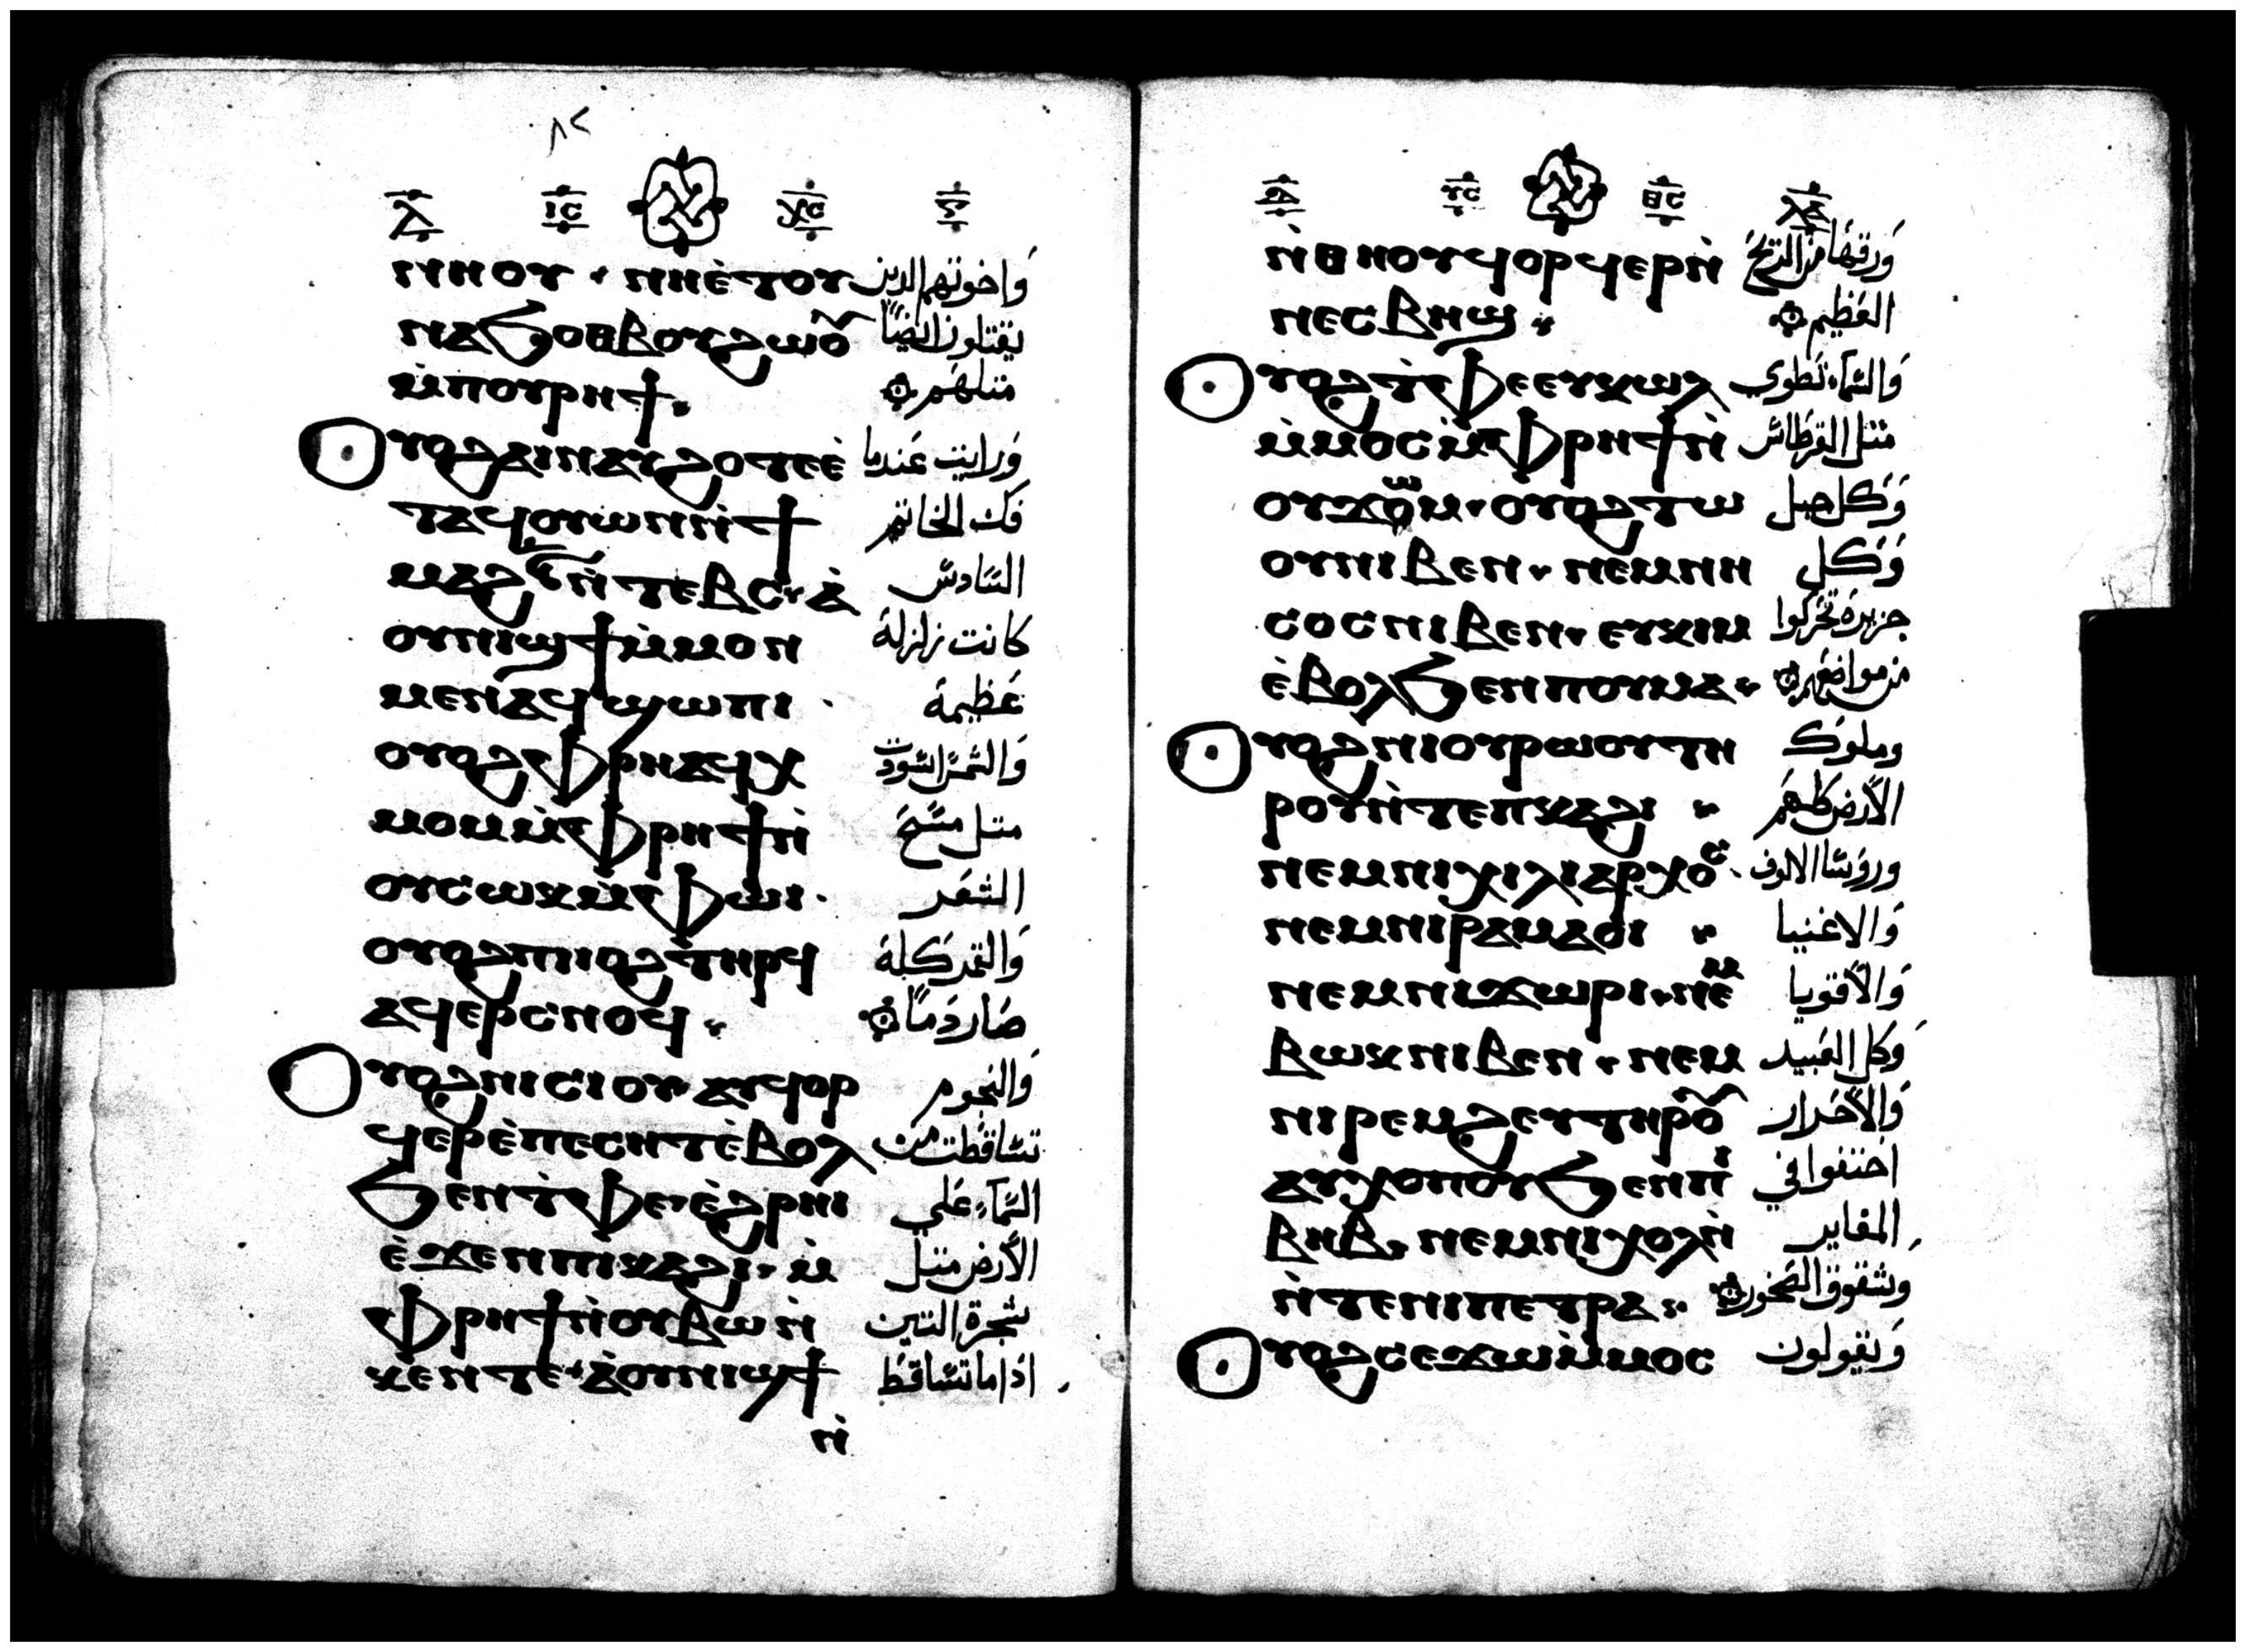 ٨٢
ⲗ ⲓⲥ ⲭⲥ
ⲛⲏⲟⲩ · ⲛⲏⲉ̀ⲧⲟⲩ واخوتهم الدين
ⲛⲁϧⲟⲑⲃⲟⲩϩⲱⲟ̃ يقتلون ايضاً
ⲙ̀ⲡⲟⲩⲣⲏϯ. مثلهم
ⲟⲩⲟϩⲁⲓⲛⲁⲩϩⲟⲧⲉⲉ̀ ورايت عندما
ⲧⲁϥⲟⲩⲱⲛⲛ̀ϯ فك الخاتم
ⲙⲁϩⲋ̅ⲛ̀ⲧⲉⲃⲥ·ⲁ̀ السادس
ⲟⲩⲛⲓϣϯⲙ̀ⲙⲟⲛ كانت زلزلة
ⲙⲉⲛⲁϥϣⲱⲡⲓ · عظيمة
ⲟⲩⲟϩⲫⲣⲏⲁϥⲭ والشمس اسودت
ⲙⲟⲙⲙ̀ⲫⲣⲏϯⲛ̀ متل مسح
ⲟⲩⲥⲱⲕⲙ̀ⲫⲱⲓ · الشعر
ⲟⲩⲟϩⲡⲓⲓⲟϩⲧⲏⲣϥ والقمر كله
ⲁϥⲉⲣⲥⲛⲟϥ · صار دماً
ⲟⲩⲟϩⲛⲓⲥⲓⲟⲩ·ⲁⲩϥⲟⲣ والنجوم
ϥⲉⲣⲉ̀ⲡⲉⲥⲏⲧⲉ̀ⲃⲟⲗ تساقطت من
ϧⲉⲛⲧ̀ⲫⲉ·ⲉ̀ϩⲣⲏⲓ السماء علي
ⲉ̀ϫⲉⲛⲡⲓⲕⲁϩⲓ·ⲙ̀ الأرض متل
ⲫⲣⲏϯⲛ̀ⲟⲩⲃⲱⲛ̀ شجرة التين
ⲕⲉⲛⲧⲉ·ⲁ̀ⲟⲩⲛⲓϣϯ اذا ما تساقط
ⲛ̀
ⲩⲥ ⲑⲥ
ⲛ̀ⲑⲏⲟⲩϥⲟⲣϥⲉⲣⲛ̀ ورقها من الريح
ⲛⲉⲥⲃⲏϣ · العظيم
ⲟⲩⲟϩⲧ̀ⲫⲉⲉⲩⲕⲱⲗ والسماء تطوي
ⲙ̀ⲙⲟⲥⲙ̀ⲫⲣⲏϯⲛ̀ متل القرطاس
ⲟⲩϫⲟⲱⲙ·ⲟⲩⲟϩⲧⲱ وكل جبل
ⲟⲩⲛⲓⲃⲉⲛ·ⲛⲉⲙⲛⲏ وكل
ⲥⲟⲥⲛⲓⲃⲉⲛ·ⲉⲩⲕⲓⲙ جزيرة تحركوا
ⲉ̀ⲃⲟⲗϧⲉⲛⲡⲟⲩⲙⲁ· من مواضعهم
ⲟⲩⲟϩⲛⲓⲟⲩⲣⲱⲟⲩⲧⲏ وملوك
ⲣⲟⲩⲛ̀ⲧⲉⲡⲕⲁϩⲓ · الأرض كلهم
ⲛⲉⲙⲛⲓⲭⲓⲗⲓⲁⲣⲭⲟⲥ · وروسا الالوف
ⲛⲉⲙⲛⲓⲣⲁⲙⲁⲟⲓ · والاغنيا
ⲛⲉⲙⲛⲓϫⲱⲣⲓ·ⲛⲉⲙ والأقويا
ⲃⲱⲕⲛⲓⲃⲉⲛ·ⲛⲉⲙ وكل العبيد
ⲛⲓⲣⲉⲙϩⲉⲩⲧⲏⲣⲟ̃ والأحرار
ⲁⲩⲭⲟⲡⲟⲩϧⲉⲛⲛⲓ اختفوا في
ⲃⲏⲃ·ⲛⲉⲙⲛⲓⲭⲟⲗⲛ̀ المغاير
ⲛ̀ⲧⲉⲛⲓⲡⲉⲧⲣⲁ · وشقوق الصخور
ⲟⲩⲟϩⲥⲉϫⲱⲙ̀ⲙⲟⲥ ويقولون